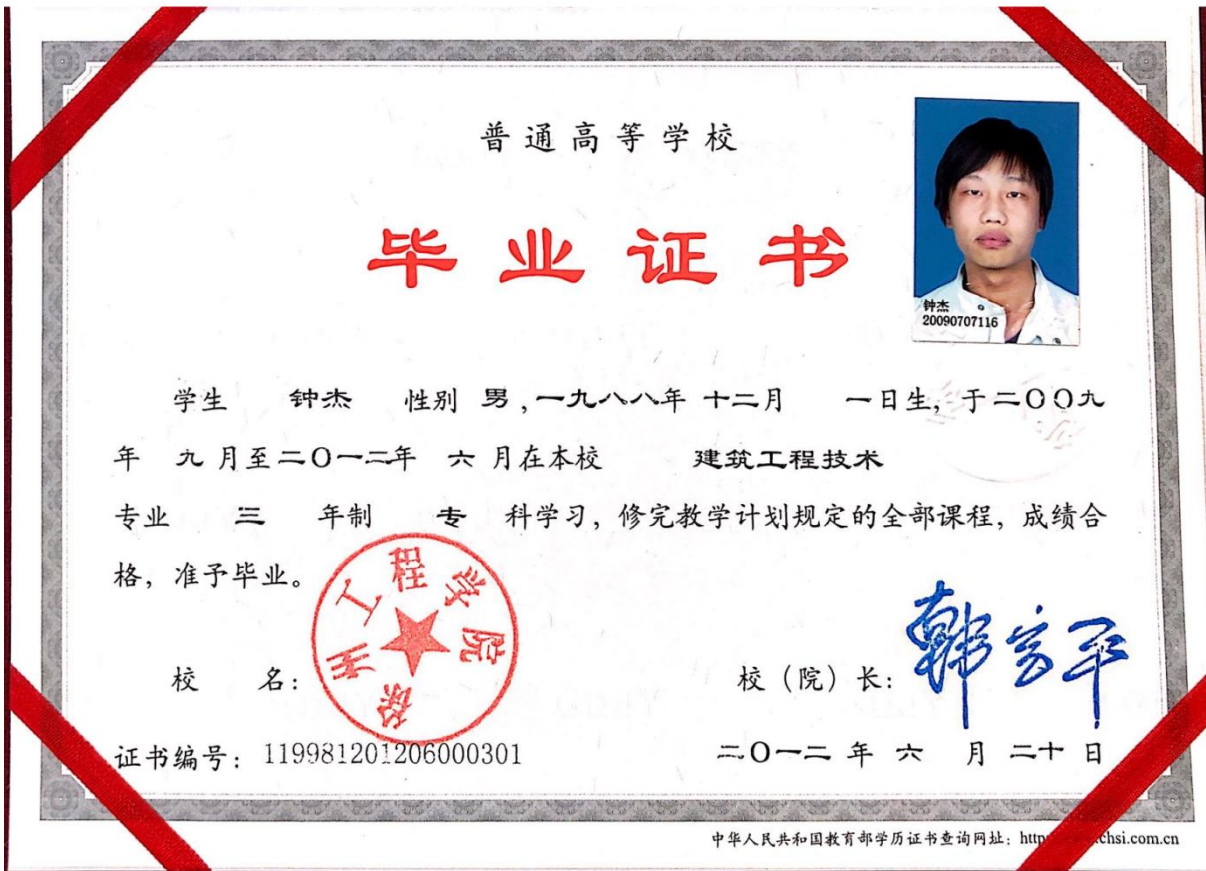 普通高等学校
毕业证书
钟杰
20090707116
学生 钟杰 性别 男,一九八八年 十二月 一日生,于二〇〇九
年 九月至二〇一二年 六月在本校 建筑工程技术
专业 三 年制 专 科学习,修完教学计划规定的全部课程,成绩合
格,准予毕业。
徐州工程学院
校 名: 校(院)长: 韩宝平
证书编号: 119981201206000301 二〇一二年 六 月 二十 日
中华人民共和国教育部学历证书查询网址: http chsi.com.cn